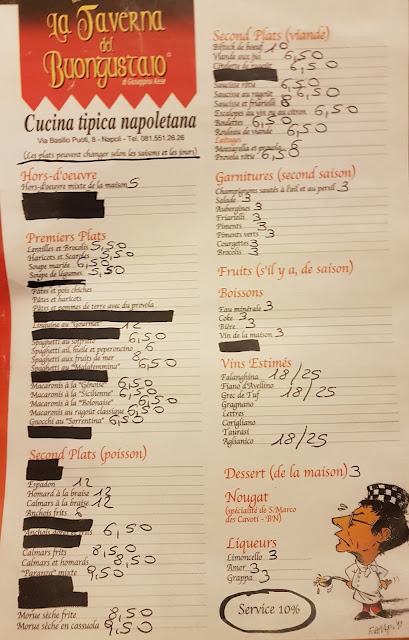 La Taverna
del
Buongustaio
di Giuseppina Aiese
Cucina tipica napoletana
Via Basilio Puoti, 8 - Napoli - Tel. 081.551.26.26
(Les plats peuvent changer selon les saisons et les jours)
Hors-d'oeuvre
Hors-d'oeuvre mixte de la maison 5
Premiers Plats
Lentilles et Brocolis 5,50
Haricots et Scaroles 5,50
Soupe mariée 6,50
Soupe de légumes 5,50
Pâtes et pois chiches
Pâtes et haricots
Pâtes et pommes de terre avec du provola
Linguine au "Gourmet" 12
Spaghetti au soffritto 6,50
Spaghetti ail, huile et peperoncino 6
Spaghetti aux fruits de mer 8
Spaghetti au "Malafemmina" 6,50
Macaronis à la "Génoise" 6,50
Macaronis à la "Sicilienne" 6,50
Macaronis à la "Bolonaise" 6,50
Macaronis au ragoût classique 6,50
Gnocchi au "Sorrentina" 6,50
Second Plats (poisson)
Espadon 12
Homard à la braise 12
Calmars à la braise 12
Anchois frits 6
Anchois 6,50
Calmars frits 8,50
Calmars et homards 8,50
"Paranza" mixte 9,50
Morue sèche frite 8,50
Morue sèche en cassuola 9,50
Second Plats (viande)
Bifteck de boeuf 10
Viande aux fui 6,50
Côtelette de ragoût
Saucisse rôtie 6,50
Saucisse au ragoût 6,50
Saucisse et friarielli 8
Escalopes au vin ou au citron 6,50
Boulettes 6,50
Rouleau de viande 6,50
Laitages
Mozzarella et provola 6
Provola rôtie 6,50
Garnitures (second saison)
Champignons sautés à l'ail et au persil 3
Salade 3
Aubergines 3
Friarielli 3
Piments 3
Piments verts 3
Courgettes 3
Brocolis 3
Fruits (s'il y a, de saison)
Boissons
Eau minérale 3
Coke 3
Bière 3
Vin de la maison 3
Vins Estimés
Falanghina 18/25
Fiano d'Avellino
Grec de Tuf 18/25
Gragnano
Lettres
Corigliano
Taurasi
Aglianico 18/25
Dessert (de la maison) 3
Nougat
(spécialité de S.Marco
des Cavoti - BN)
Liqueurs
Limoncello 3
Amer 3
Grappa 3
Service 10%